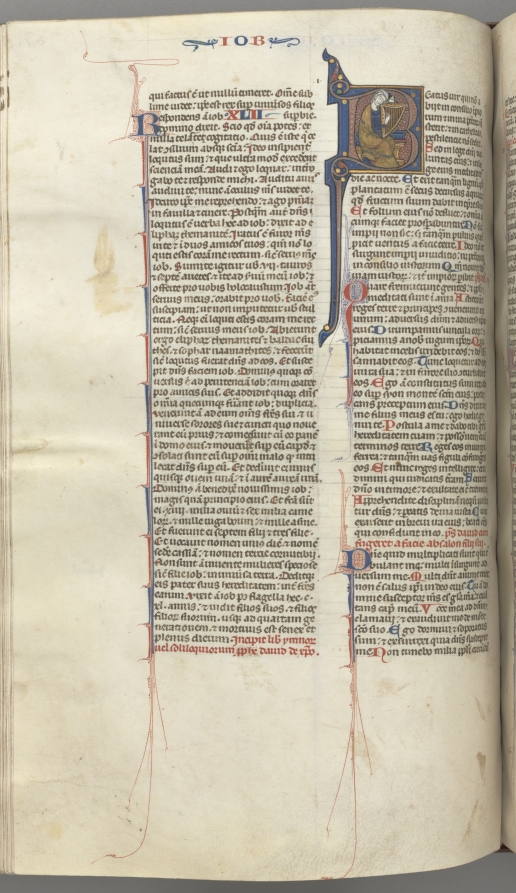 IOB
qui factus ē ut nullū timeret. Om̄e sub
lime uidet: ip̄e est rex sup uniūsos filios
Respondens aūt iob XLII supbie.
domino dixit. Scio qd oīa potes: et
nulla te latet cogitatio. Quis ē iste q̄ ce
lat ɔsilium absq; scīa: Ideo insipient̄
locutus sum: ⁊ que ultra mod̄ excederēt
scientiam meā. Audi ⁊ ego loquar: int̄ro
gabo te ⁊ responde michi. Auditu auris
audiui te: nunc aūt oculus m̄s uidet te.
Idcirco ip̄e me rep̄hendo: ⁊ ago pn̄iam
in fauilla ⁊ cinere. Postq̄m aūt dn̄s
locutus ē uerba hec ad iob: dixit ad e
liphaz themanitē. Iratus ē furor m̄s
in te ⁊ ī duos amicos tuos: qm̄ nō lo
cuti estis corā me rectum: sic̄ seruus m̄s
iob. Sumite igitur uob VII. tauros
⁊ septē arietes: ⁊ ite ad s̄uū meū iob: ⁊
offerte pro uobis holocaustum. Iob aūt
seruus meus: orabit pro uob. Faciē eī
suscipiam: ut non imputetur uob stul
ticia. Neq; eī locuti estis coram me rec
tum: sic̄ seruus meus iob. Abierunt
ergo eliphaz themanites ⁊ baldac sui
thes. ⁊ sophar naamathites: ⁊ fecerūt
sic̄ locutus fuerat dn̄s ad eos. Et susce
pit dn̄s faciem iob. Dominus quoq; cō
uersus ē ad penitenciā iob: cum oraret
pro amicis suis. Et addidit quoq; dn̄s
om̄ia quecumq; fuerāt iob: duplicia.
Uenerunt aūt ad eum om̄s fr̄es sui: ⁊ u
niuerse sorores sue ⁊ cuncti qui noue
rant eū prius: ⁊ comederūt cū eo panē
ī domo eius: ⁊ mouerūt sup eū caput. ⁊
ɔsolati sunt eū sup om̄i malo qd intu
lerat dn̄s sup eū. Et dederūt ei unus
quisq; ouem unā: ⁊ ī aurē aureā unā.
Dominus aūt benedixit nouissimis iob:
magis quā principio eius. Et facta sūt
ei XIIII. milia ouiū ⁊ sex milia came
lor̄. ⁊ mille iuga boum ⁊ mille asine.
Et fuerunt ei septem filij ⁊ tres filie.
Et uocauit nomen unius diē: ⁊ nomē
sc̄de cassiā. ⁊ nomen tercie cornustibij.
Non sunt aūt inuente mulieres speciose
sic̄ filie iob: in uniūsa terra. Deditq;
eis pater suus hereditatem: int̄ fr̄es
earum. Vixit aūt iob p̄ flagella hec. c.
xl. annis: ⁊ uidit filios suos, ⁊ filios
filiorū suorum, usq; ad quartam ge
nerationem. ⁊ mortuus est senex et
plenus dierum. Incipit lib ymnor̄
uel soliloquiorum pph̄e dauid de xp̄o.
Beatus uir qui nō a
bijt in consilio ipi
orum: ⁊ in uia peccator̄
nō stetit: ⁊ in cathedra
pestilencie nō sedit.
Sed in lege dn̄i uo
luntas eius: ⁊ in le
ge eius meditabit̄
die ac nocte. Et erit tanq̄m lignū qd
plantatum ē secus decursus aquar̄:
qd fructum suum dabit in tp̄e suo.
Et folium eius nō defluet: ⁊ om̄ia q̄
cumq; faciet prosperabunt̄. Nō sic
impij non sic: s; tanq̄m puluis quē
proicit uentus a facie terre. Ideo nō re
surgunt impij in iudicio: neq; pccōres
in consilio iustorum. Qm̄ nouit dn̄s
uiam iustor̄: ⁊ iter impior̄ peribit.
Quare fremuerunt gentes: ⁊ ip̄li
meditati sunt inania. Astiterunt
reges terre ⁊ principes ɔuenerunt in
unum: aduersus dn̄m ⁊ aduersus xp̄m
eius. Dirumpamus uincula eor̄: ⁊
proiciamus a nobis iugum ipsor̄. Qui
habitat in celis irridebit eos: ⁊ dn̄s sub
sannabit eos. Tunc loquetur ad eos
in ira sua: ⁊ in furore suo ɔturbabit
eos. Ego aūt ɔstitutus sum rex ab
eo sup syon montē scm̄ eius: predi
cans preceptum eius. Dn̄s dixit ad
me filius meus es tu: ego hodie ge
nui te. Postula a me ⁊ dabo tibi gn̄tes
hereditatem tuam: ⁊ possessionē tuā
terminos terre. Reges eos in uirga
ferrea: ⁊ tanq̄m uas figuli ɔfringes
eos. Et nunc reges intelligite: eru
dimini qui iudicatis terrā. Seruite
dn̄o in timore: ⁊ exultate ei cū tremore.
Apprehendite disciplinā: ne quando iras
catur dn̄s: ⁊ pereatis de uia iusta. Cum
exarserit in breui ira eius: beati om̄s
qui confidunt in eo. ps dauid cum
fugeret a facie absalon filij sui.
Dn̄e quid multiplicati sunt qui tri
bulant me: multi insurgunt ad
uersum me. Multi dicunt anime mee:
non ē salus ip̄i in deo eius. Tu aūt
dn̄e susceptor m̄s es: gl̄a mea ⁊ exal
tans caput meū. Voce mea ad dn̄m
clamaui: ⁊ exaudiuit me de monte
scō suo. Ego dormiui ⁊ soporatus
sum: ⁊ exsurrexi quia dn̄s suscepit
me. Non timebo milia ppl̄i circūdantis